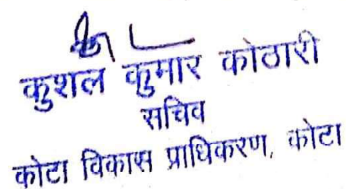 कुशल कुमार कोठारी
सचिव
कोटा विकास प्राधिकरण, कोटा